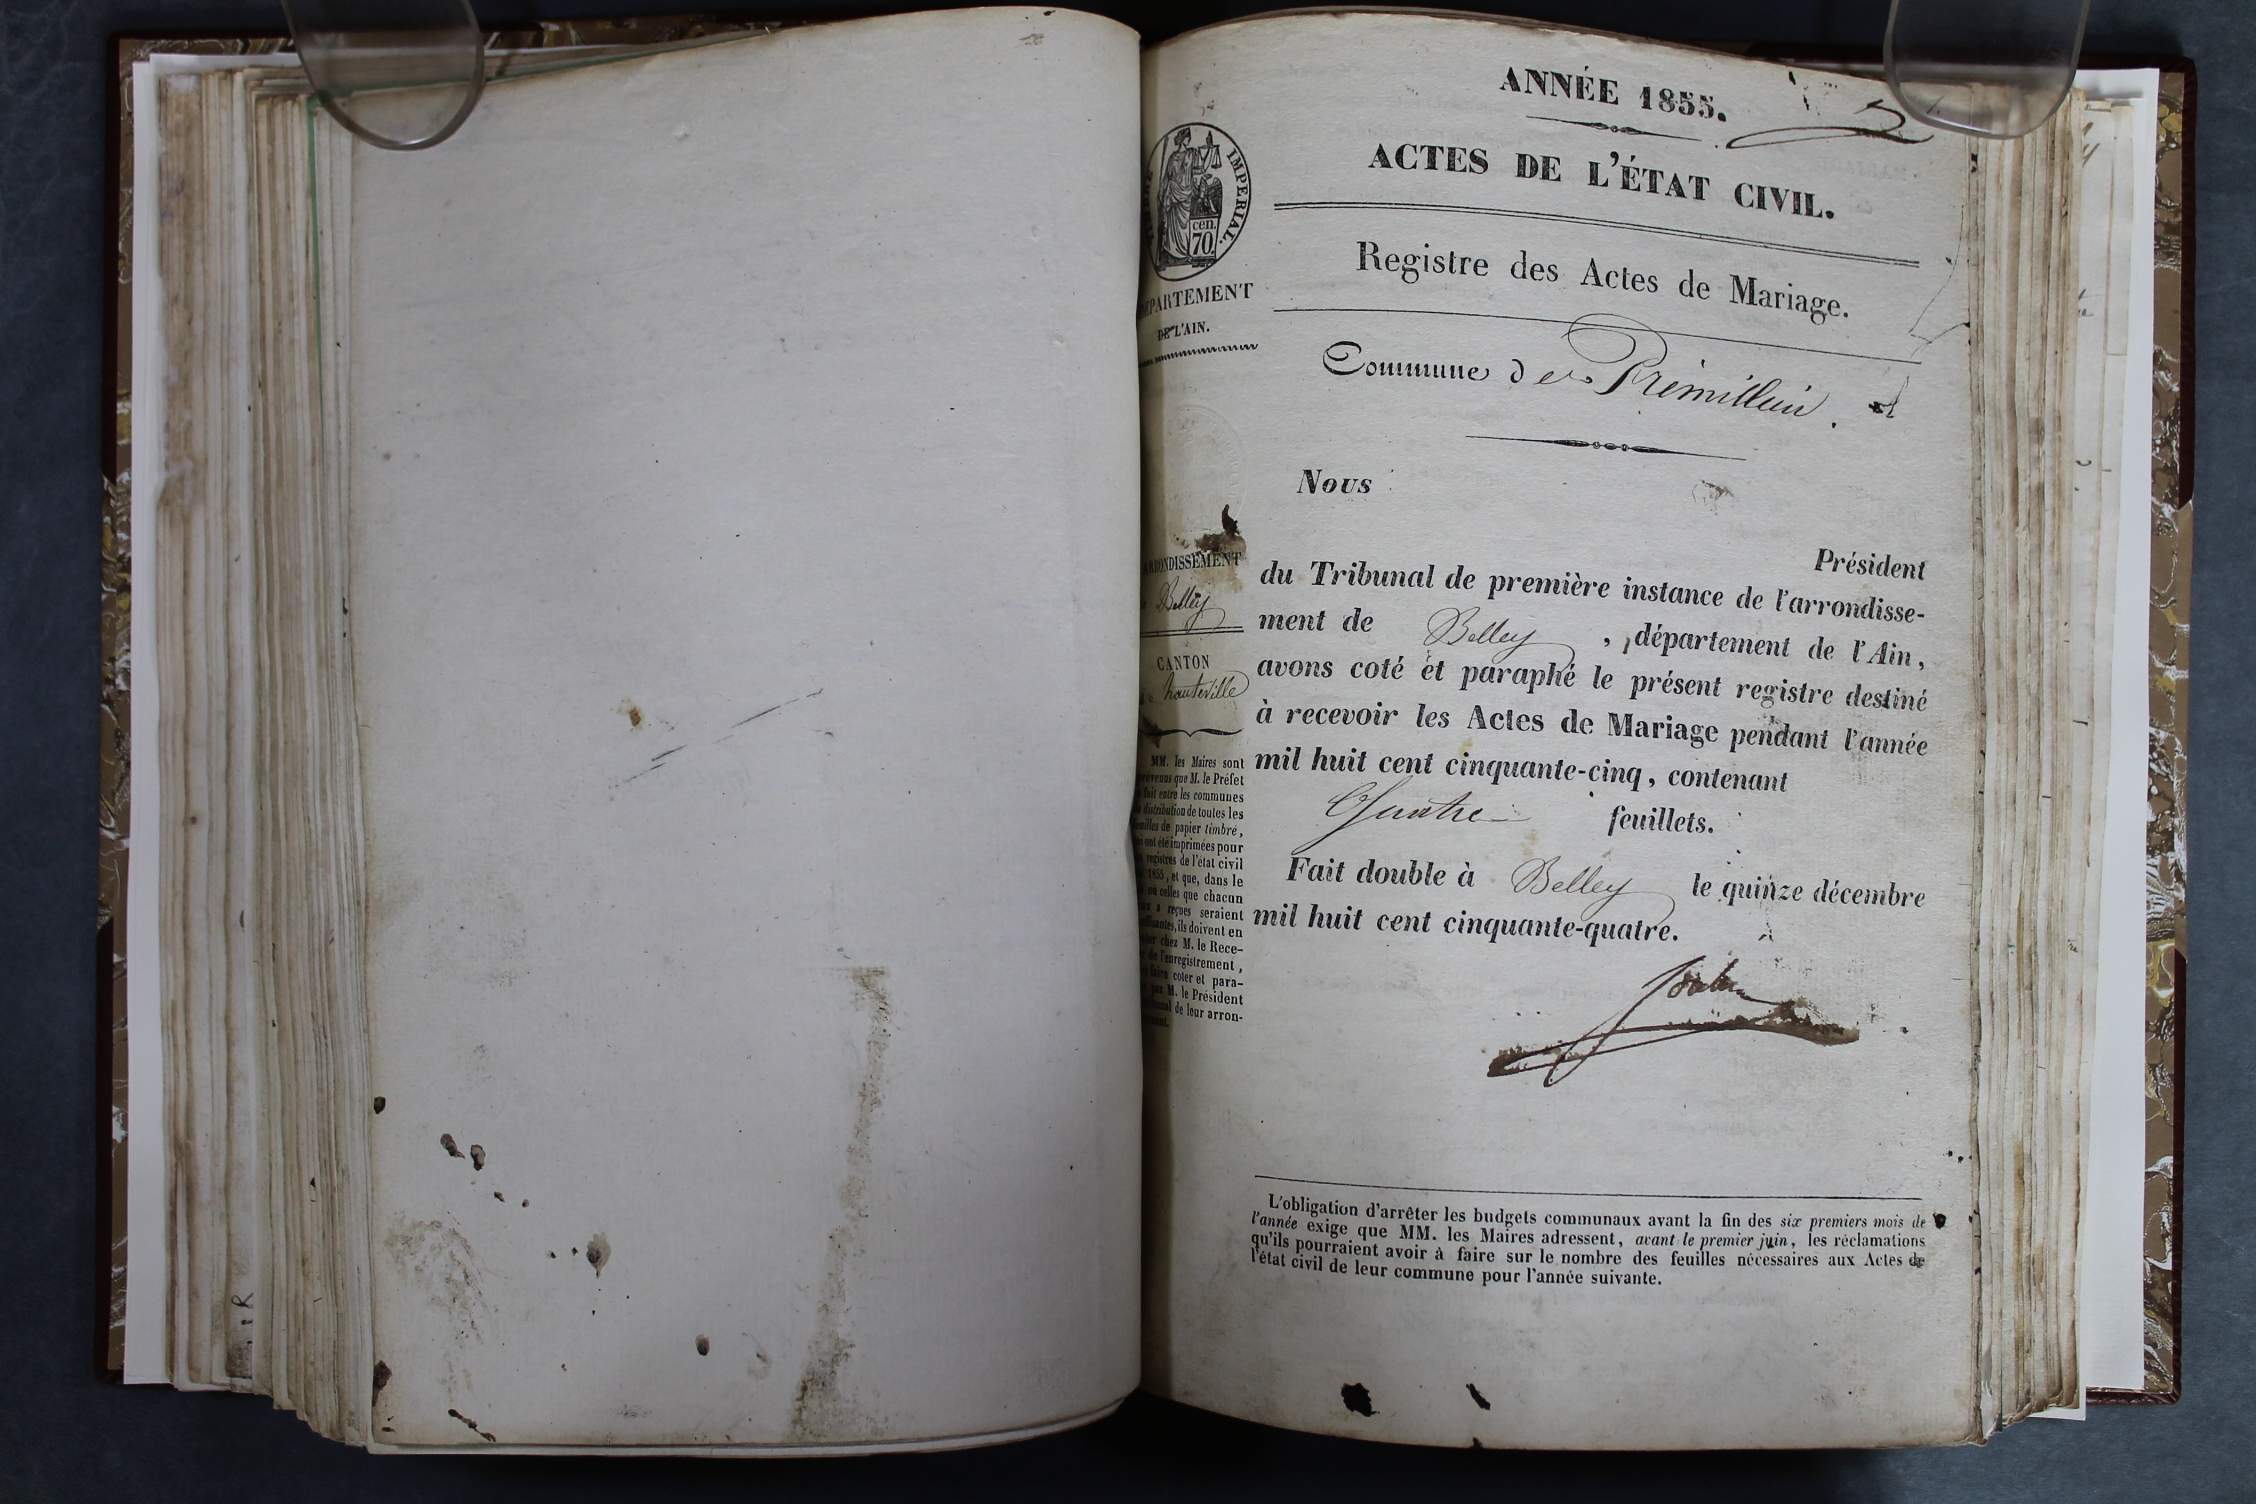 ANNÉE 1855.
ACTES DE L'ÉTAT CIVIL.
Registre des Actes de Mariage.
Commune de Prémillieu
Nous
Président
du Tribunal de première instance de l'arrondisse-
ment de Belley, département de l'Ain,
avons coté et paraphé le présent registre destiné
à recevoir les Actes de Mariage pendant l'année
mil huit cent cinquante-cinq, contenant
Quatre feuillets.
Fait double à Belley le quinze décembre
mil huit cent cinquante-quatre.
L'obligation d'arrêter les budgets communaux avant la fin des six premiers mois de
l'année exige que MM. les Maires adressent, avant le premier juin, les réclamations
qu'ils pourraient avoir à faire sur le nombre des feuilles nécessaires aux Actes de
l'état civil de leur commune pour l'année suivante.
IMPERIAL.
cen.
70.
DEPARTEMENT
DE L'AIN.
ARRONDISSEMENT
Belley
CANTON
hauteville
MM. les Maires sont
prévenus que M. le Préfet
fait entre les communes
distribution de toutes les
feuilles de papier timbré,
ont été imprimées pour
registres de l'état civil
1855, et que, dans le
où celles que chacun
a reçues seraient
ils doivent en
chez M. le Rece-
de l'enregistrement,
faire coter et para-
par M. le Président
de leur arron-